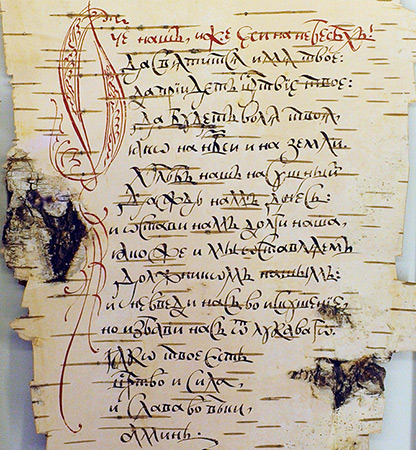 Ѻч҃е нашъ, иже еси на небесѣхъ:
да свѧтитсѧ имѧ твое:
да прїидетъ цр҃твїе твое:
да будетъ волѧ твоѧ,
ꙗко на нб҃си и на земли.
хлѣбъ нашъ насущный
даждь намъ днесь:
и ѡстави намъ долги наша,
ꙗкоже и мы ѡставлѧемъ
должникомъ нашымъ:
и не введи насъ во искушенїе,
но избави насъ ѿ лукаваго
ꙗкѡ твое есть
цр҃тво и сила,
и слава во вѣки,
аминь.